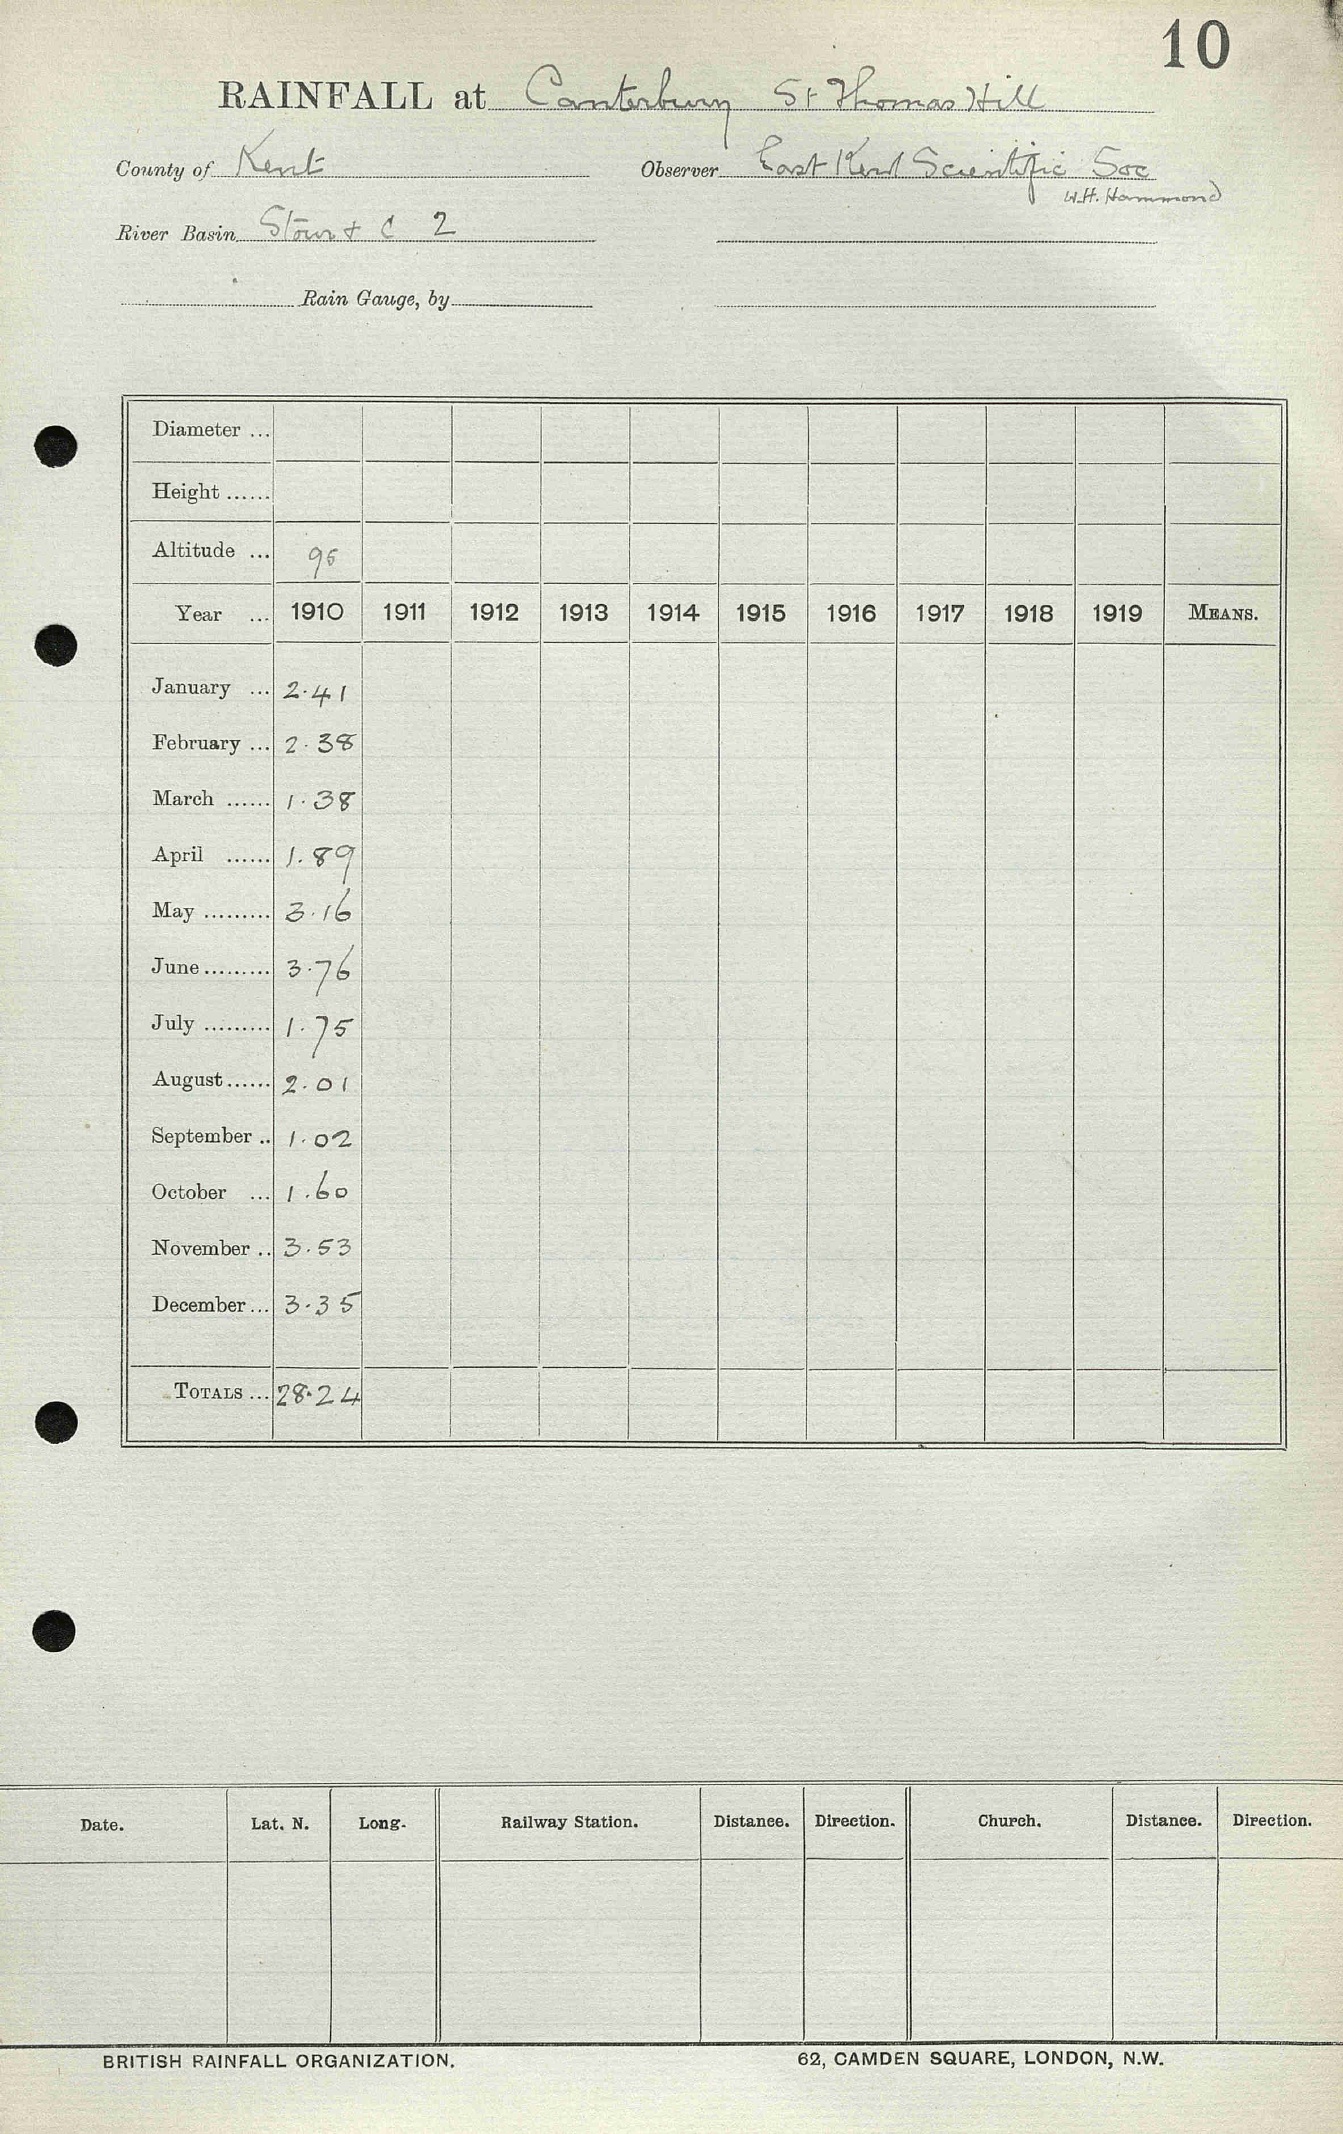 10
RAINFALL at Canterbury St Thomas Hill
County of Kent Observer East Kent Scientific Soc
W.H. Hammond
River Basin Stour & C 2
Rain Gauge, by
Diameter ...
Height ......
Altitude ... 95
Year ... 1910 1911 1912 1913 1914 1915 1916 1917 1918 1919 MEANS.
January ... 2.41
February ... 2.38
March ...... 1.38
April ...... 1.89
May ......... 3.16
June ......... 3.76
July ......... 1.75
August ...... 2.01
September .. 1.02
October ... 1.60
November .. 3.53
December ... 3.35
TOTALS ... 28.24
Date. Lat. N. Long. Railway Station. Distance. Direction. Church. Distance. Direction.
BRITISH RAINFALL ORGANIZATION. 62, CAMDEN SQUARE, LONDON, N.W.